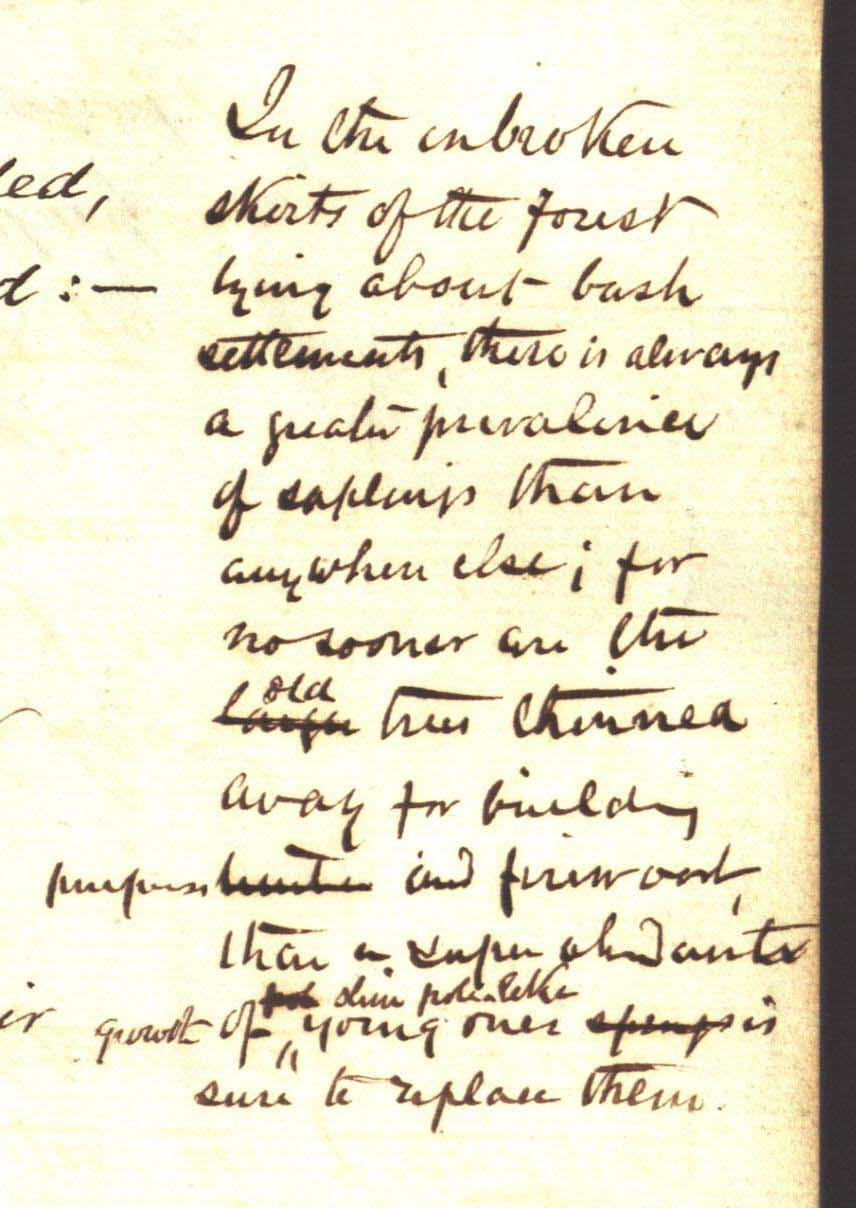 In the unbroken
led,
skirts of the forest
d : —
lying about bush
settlements, there is always
a greater prevalence
of saplings than
anywhere else; for
no sooner are the
old
large trees thinned
away for building
purposes and firewood,
than a super abundant
slim pole-like
growth of young ones springs is
sure to replace them.